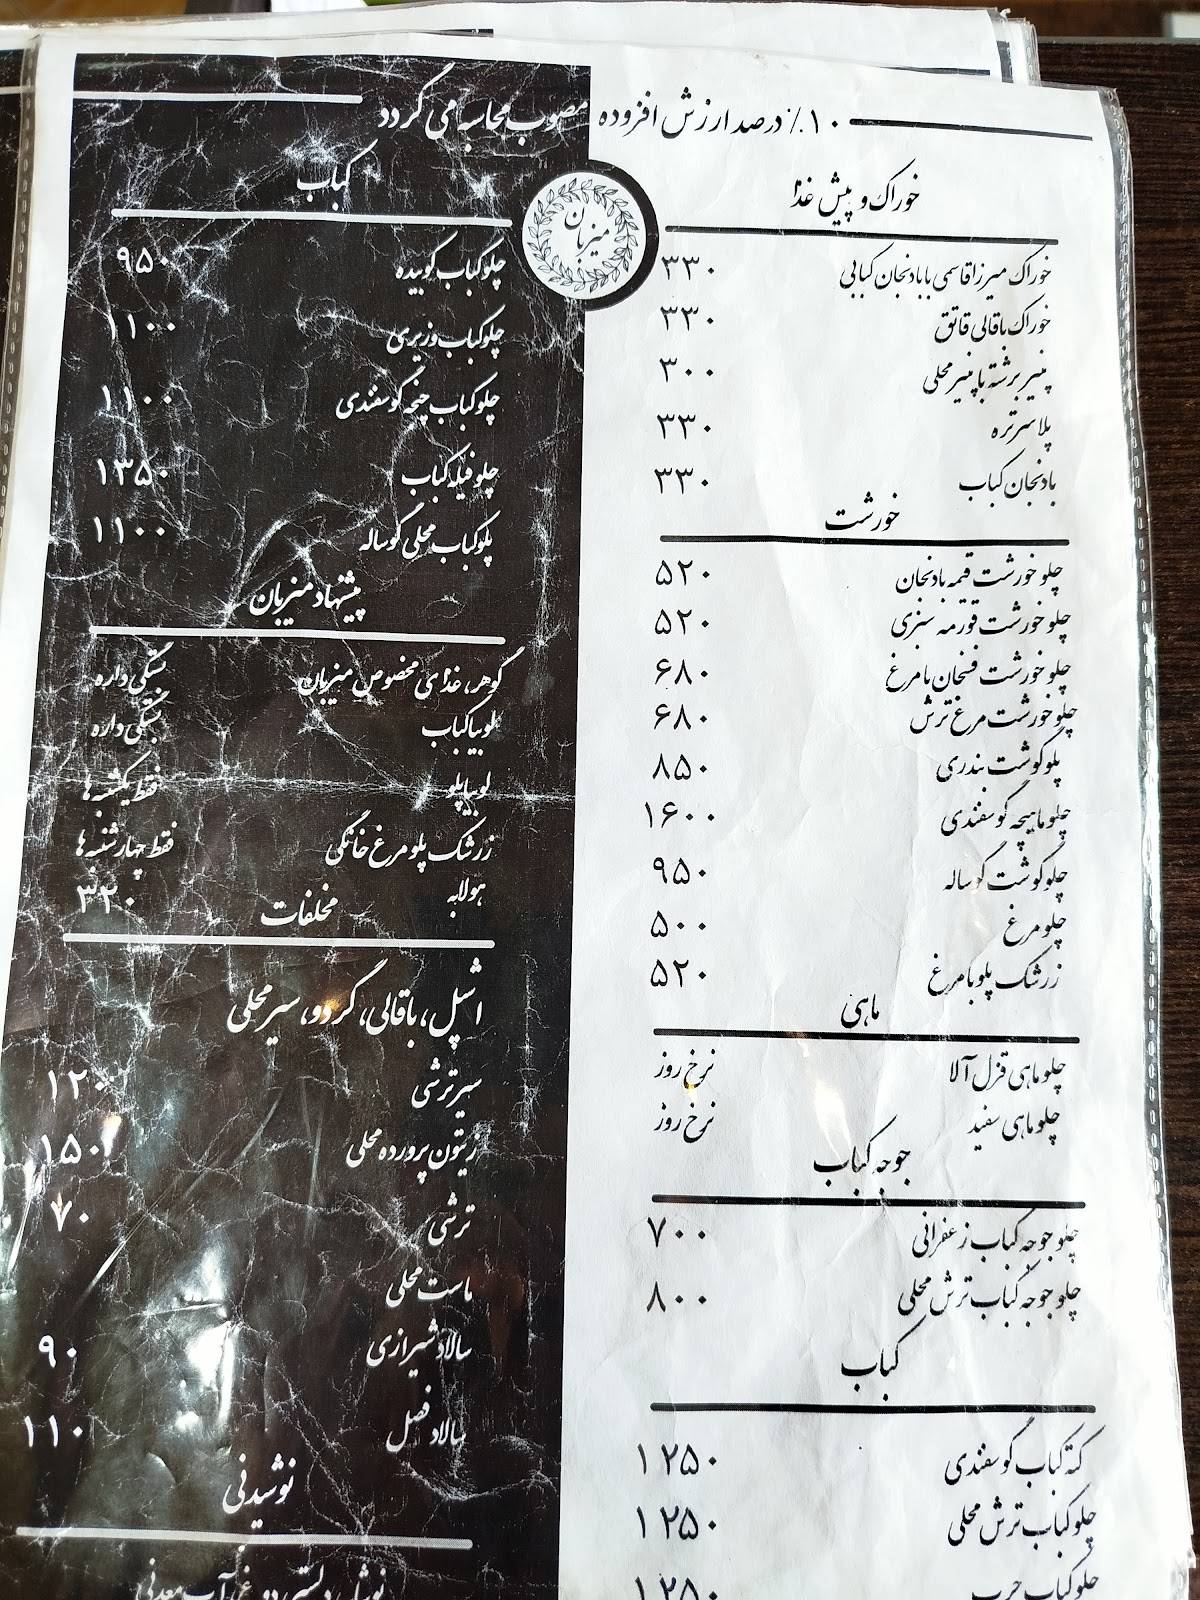 ۱۰٪ درصد ارزش افزوده مصوب محاسبه می گردد
میزبان
خوراک و پیش غذا
خوراک میرزا قاسمی با بادنجان کبابی ۳۳۰
خوراک باقالی قاتق ۳۳۰
پنیر برشته با پنیر محلی ۳۰۰
پلا سرتره ۳۳۰
بادنجان کباب ۳۳۰
خورشت
چلو خورشت قیمه بادنجان ۵۲۰
چلو خورشت قورمه سبزی ۵۲۰
چلو خورشت فسنجان با مرغ ۶۸۰
چلو خورشت مرغ ترش ۶۸۰
پلو گوشت بندری ۸۵۰
چلو ماهیچه گوسفندی ۱۶۰۰
چلو گوشت گوساله ۹۵۰
چلو مرغ ۵۰۰
زرشک پلو با مرغ ۵۲۰
ماهی
چلو ماهی قزل آلا نرخ روز
چلو ماهی سفید نرخ روز
جوجه کباب
چلو جوجه کباب زعفرانی ۷۰۰
چلو جوجه کباب ترش محلی ۸۰۰
کباب
کته کباب گوسفندی ۱۲۵۰
چلو کباب ترش محلی ۱۲۵۰
چلو کباب چرب ۱۲۵۰
کباب
چلو کباب کوبیده ۹۵۰
چلو کباب وزیری ۱۱۰۰
چلو کباب چنجه گوسفندی ۱۱۰۰
چلو فیله کباب ۱۳۵۰
پلو کباب محلی گوساله ۱۱۰۰
پیشنهاد میزبان
گوهر، غذای مخصوص میزبان بستگی داره
لوبیا کباب بستگی داره
لوبیا پلو فقط یکشنبه ها
زرشک پلو مرغ خانگی فقط چهارشنبه ها
هولابه ۳۲۰
مخلفات
اشپل، باقالی، گردو، سیر محلی
سیر ترشی ۱۲۰
زیتون پرورده محلی ۱۵۰
ترشی ۷۰
ماست محلی
سالاد شیرازی ۹۰
سالاد فصل ۱۱۰
نوشیدنی